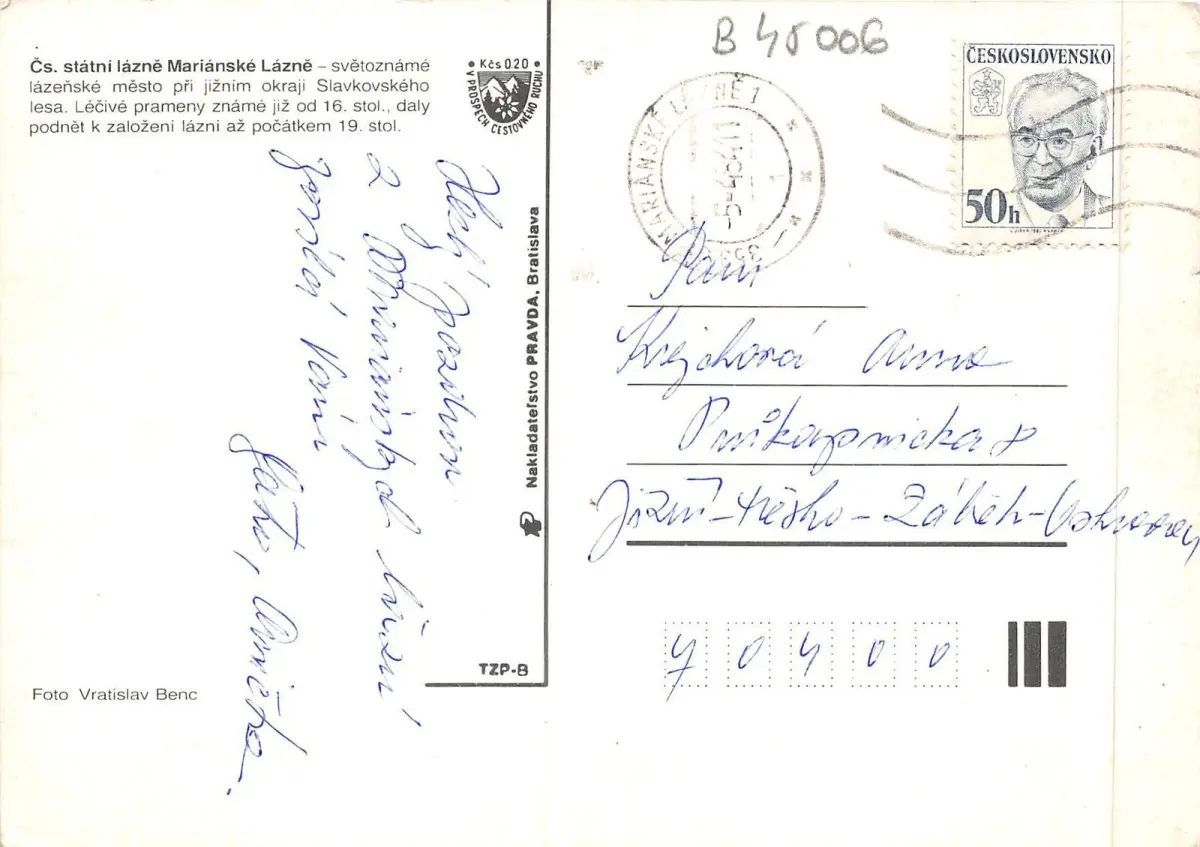 Čs. státní lázně Mariánské Lázně – světoznámé
lázeňské město při jižním okraji Slavkovského
lesa. Léčivé prameny známé již od 16. stol., daly
podnět k založení lázní až počátkem 19. stol.
Kčs 0.20
V PROSPĚCH CESTOVNÉHO RUCHU
Nakladateľstvo PRAVDA, Bratislava
TZP-B
Foto Vratislav Benc
Hezký pozdrav
z Mariánských lázní
posílá Vám
B 45006
MARIÁNSKÉ LÁZNĚ 1
ČESKOSLOVENSKO
50h
Paní
Krejchová Anna
Jižní-
70400